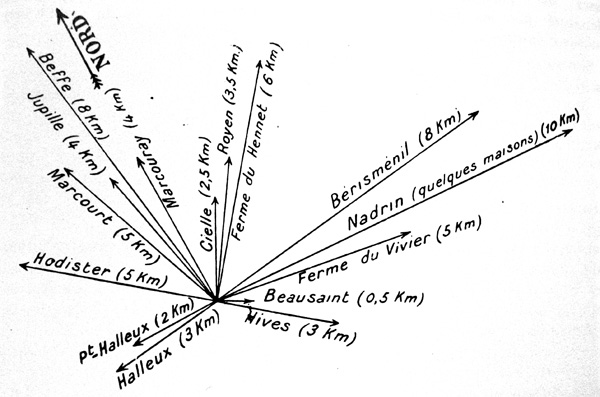 NORD.
Beffe (8 Km)
Jupille (4 Km)
Marcouray (4 Km)
Marcourt (5 Km)
Hodister (5 Km)
Pt. Halleux (2 Km)
Halleux (3 Km)
Cielle (2,5 Km)
Royen (3,5 Km.)
Ferme du Hennet (6 Km)
Bérisménil (8 Km)
Nadrin (quelques maisons) (10 Km)
Ferme du Vivier (5 Km)
Beausaint (0,5 Km)
Hives (3 Km)